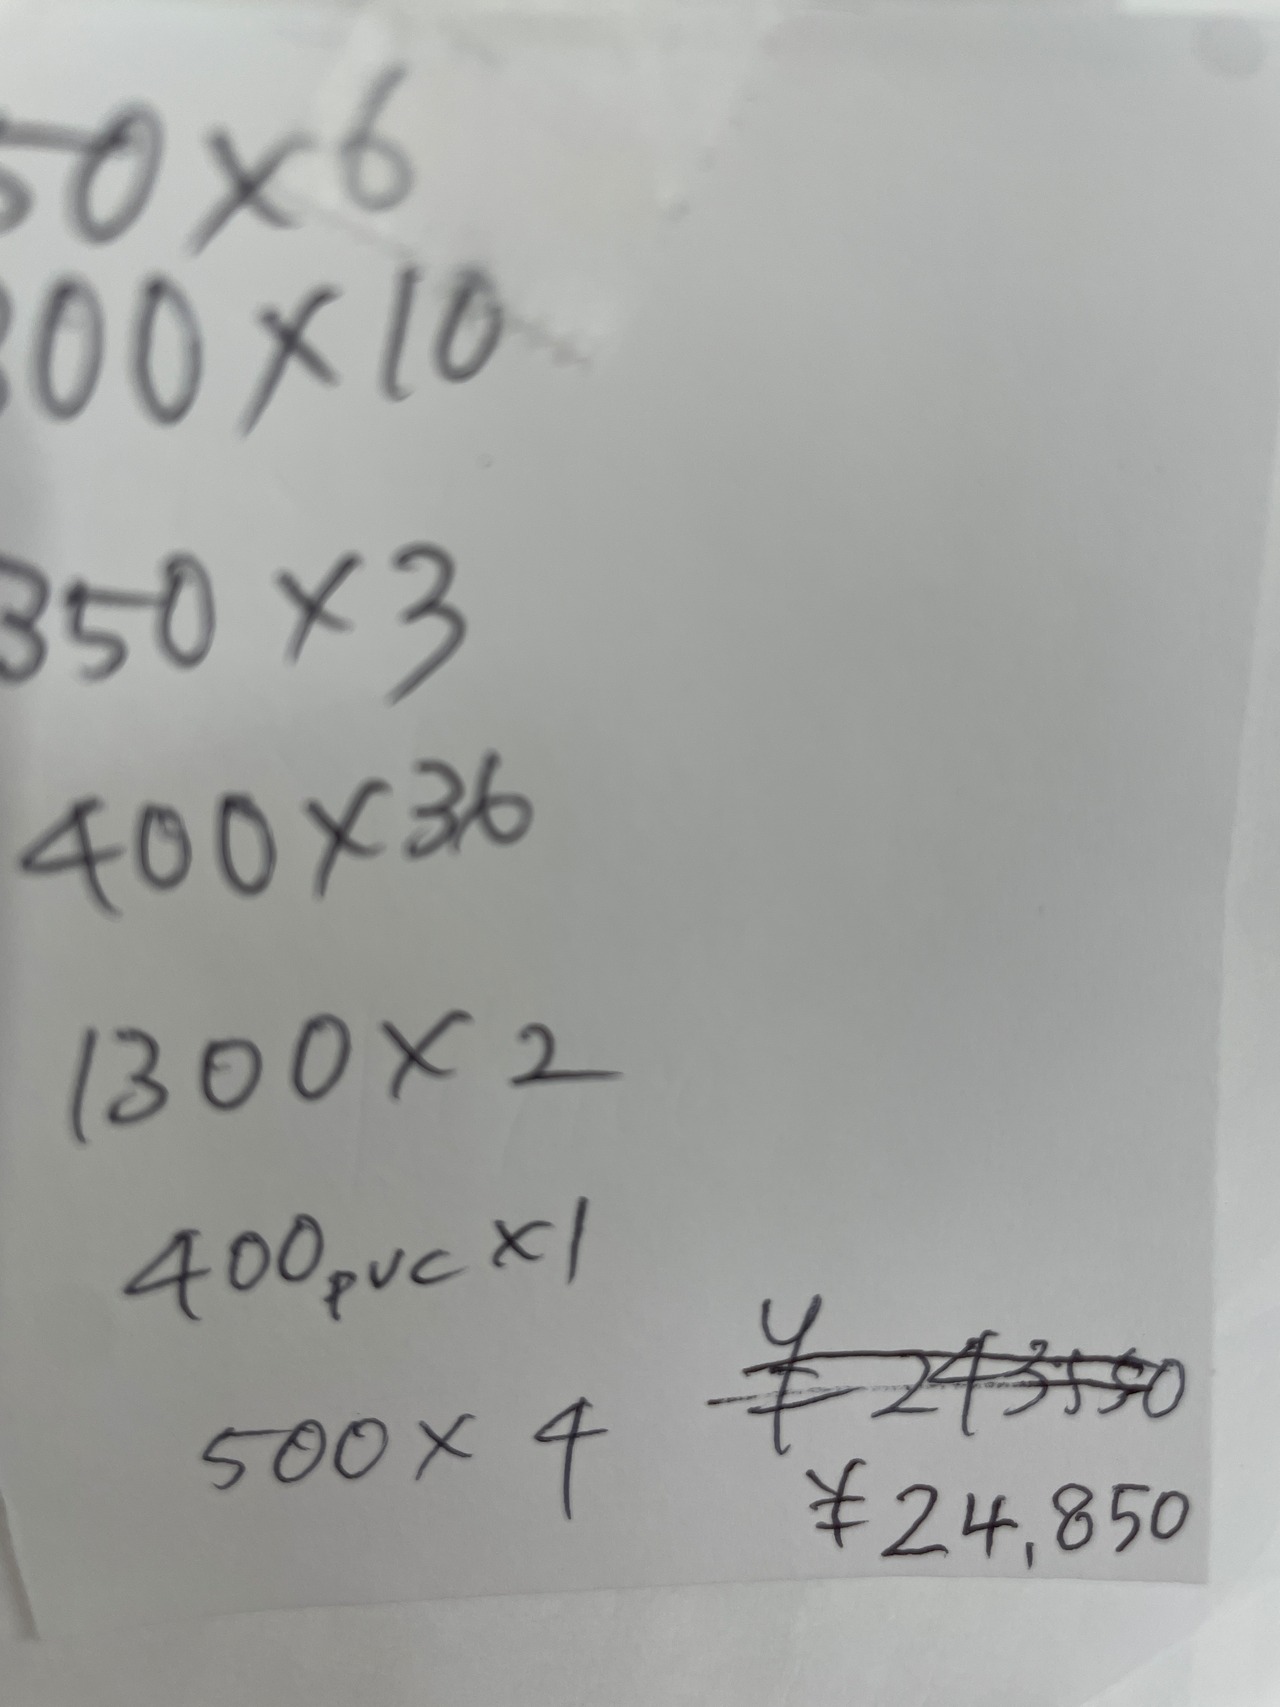 50×6
300×10
350×3
400×36
1300×2
400pvc×1
500×4
¥24,850